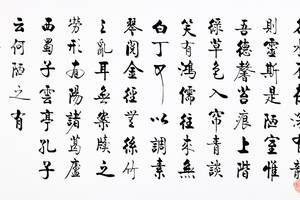 則靈斯是陋室惟
吾德馨苔痕上階
綠草色入帘青談
笑有鴻儒往來無
白丁可以調素
琴閱金經無絲竹
之亂耳無案牘之
勞形南陽諸葛廬
西蜀子雲亭孔子
云何陋之有